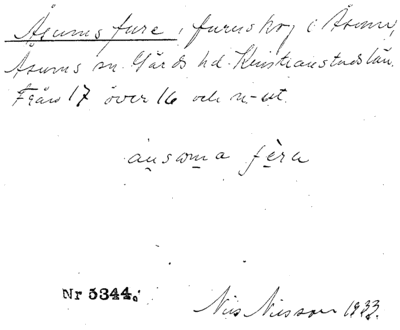 Åsums fure, furuskog i Åsum,
Åsums sn. Gärds hd. Kristianstads län.
Från 17 över 16 och n-ut.
ausoma fera
Nr 5344.
Nils Nilsson 1933.